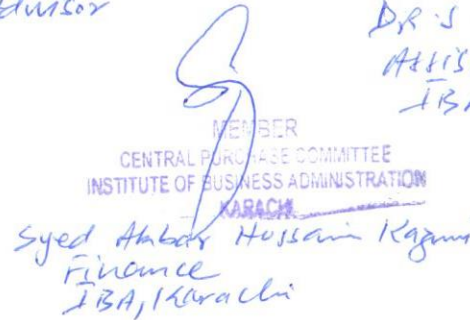 Advisor
DR S
Assis
IBA
MEMBER
CENTRAL PURCHASE COMMITTEE
INSTITUTE OF BUSINESS ADMINISTRATION
KARACHI
Syed Akbar Hussain Kazmi
Finance
IBA, Karachi